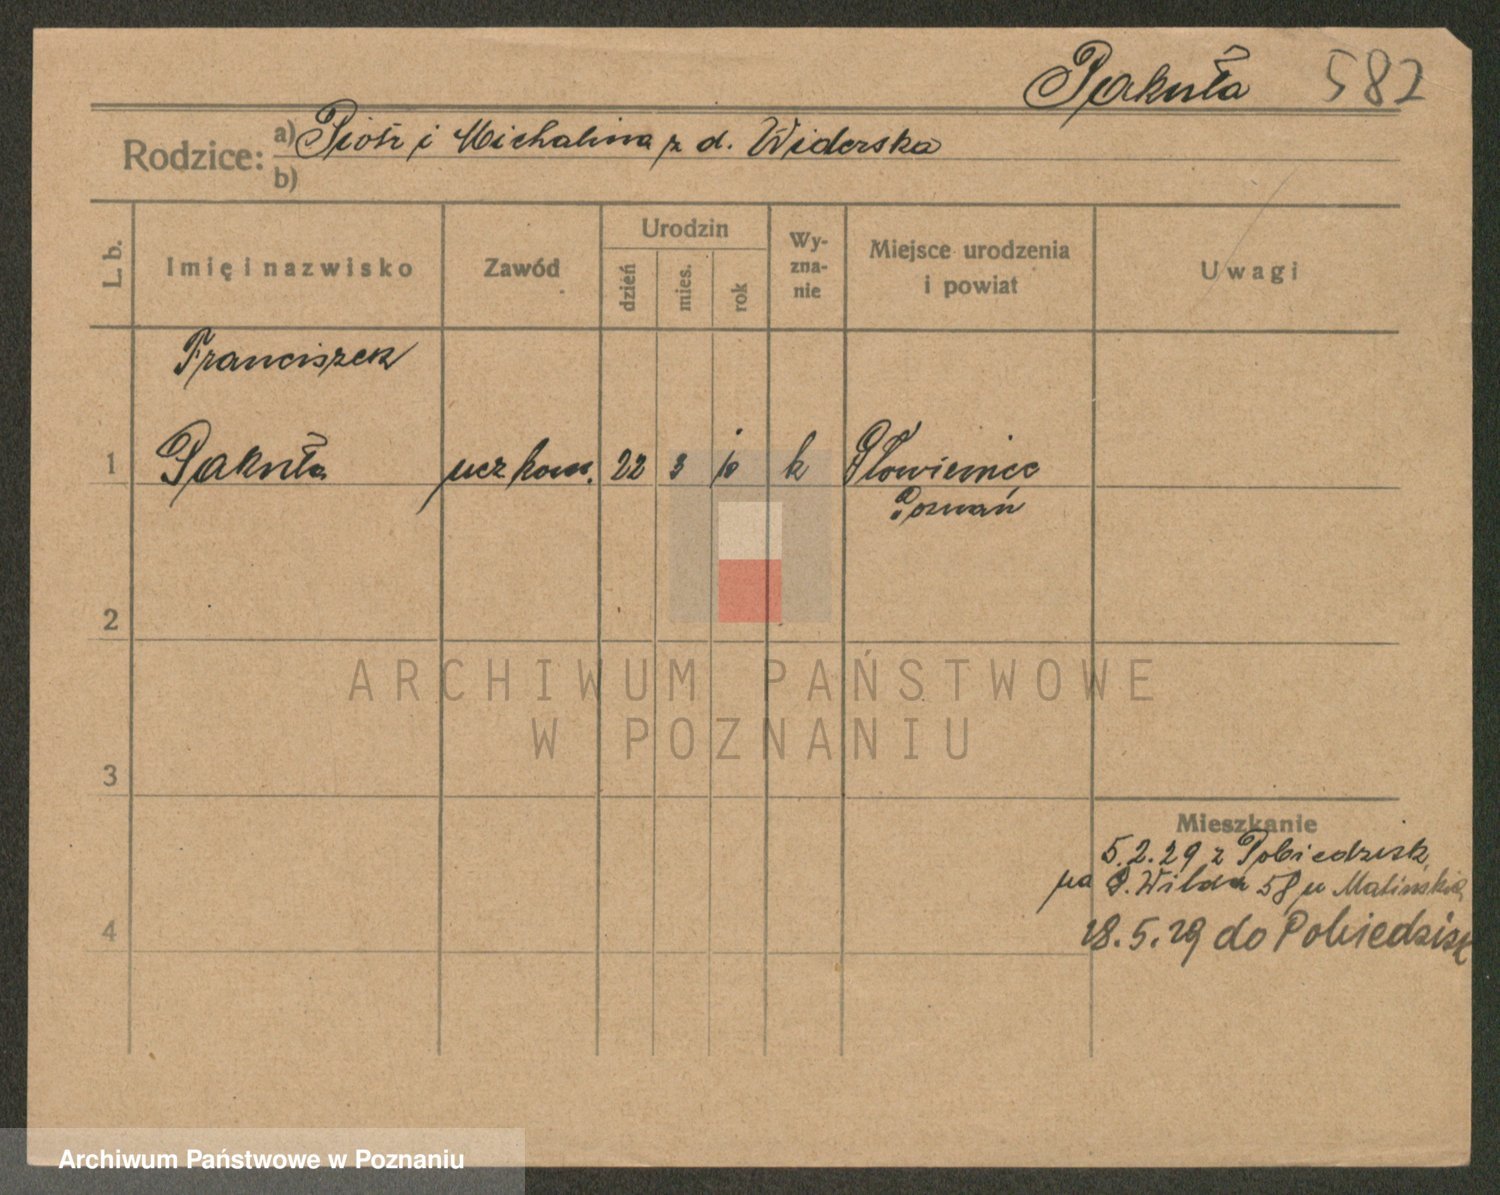 Pakuła 582
Rodzice: a) Piotr i Michalina z d. Widerska
b)
L. b.
Imię i nazwisko
Zawód
Urodzin
dzień
mies.
rok
Wy-
zna-
nie
Miejsce urodzenia
i powiat
Uwagi
Franciszek
1 Pakuła ucz kow. 22 3 10 k Głowieniec
Poznań
2
3
4
Mieszkanie
5.2.29 z Pobiedzisk
na G. Wilda 58 u Matińskie
28.5.29 do Pobiedzisk
ARCHIWUM PAŃSTWOWE
W POZNANIU
Archiwum Państwowe w Poznaniu